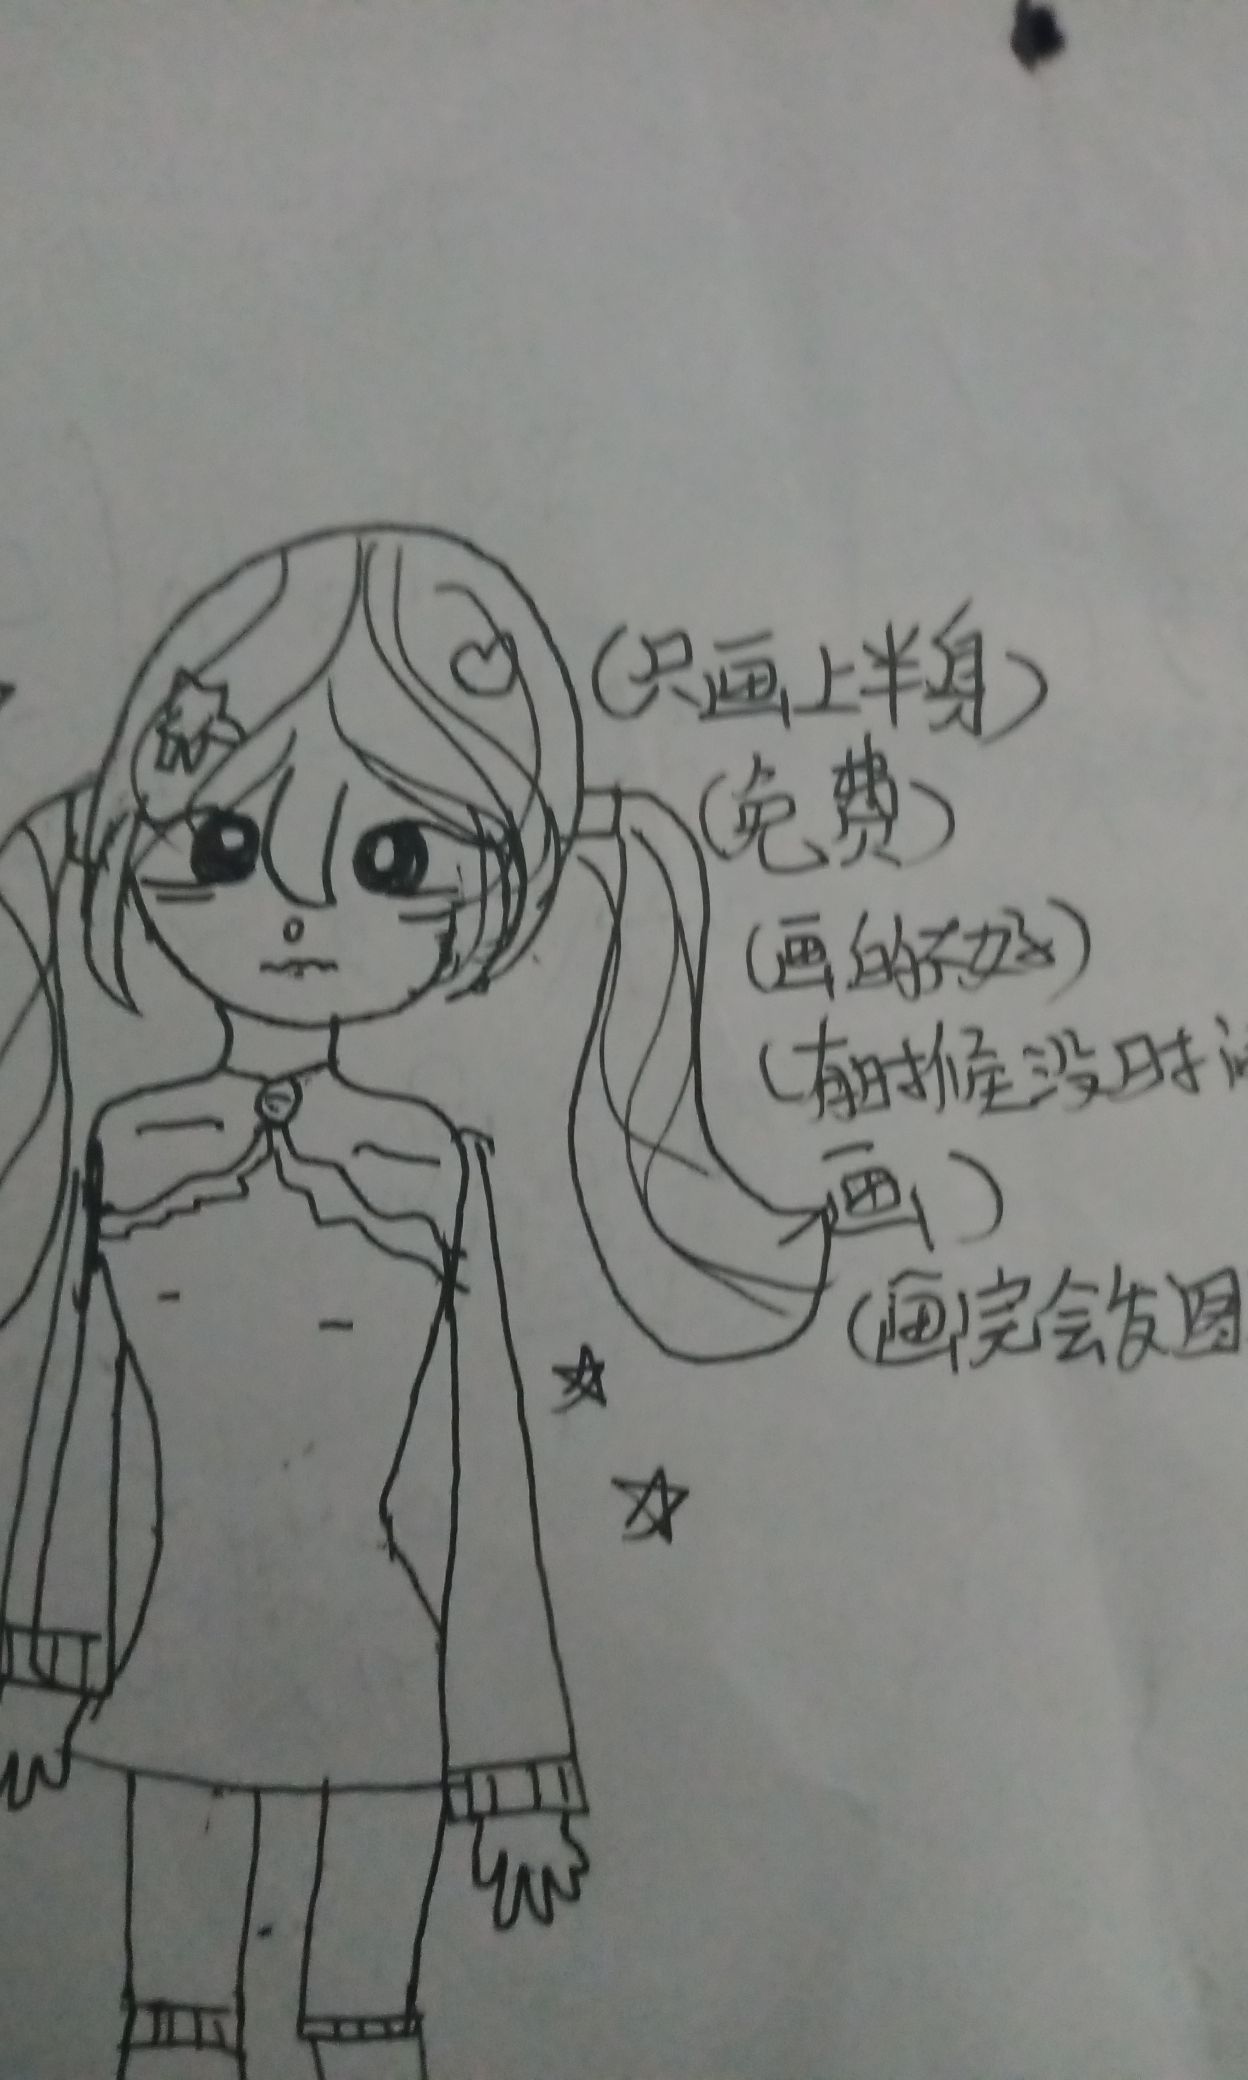 (只画上半身)
(免费)
(画的不好)
(有时候没时
画)
(画完会发图